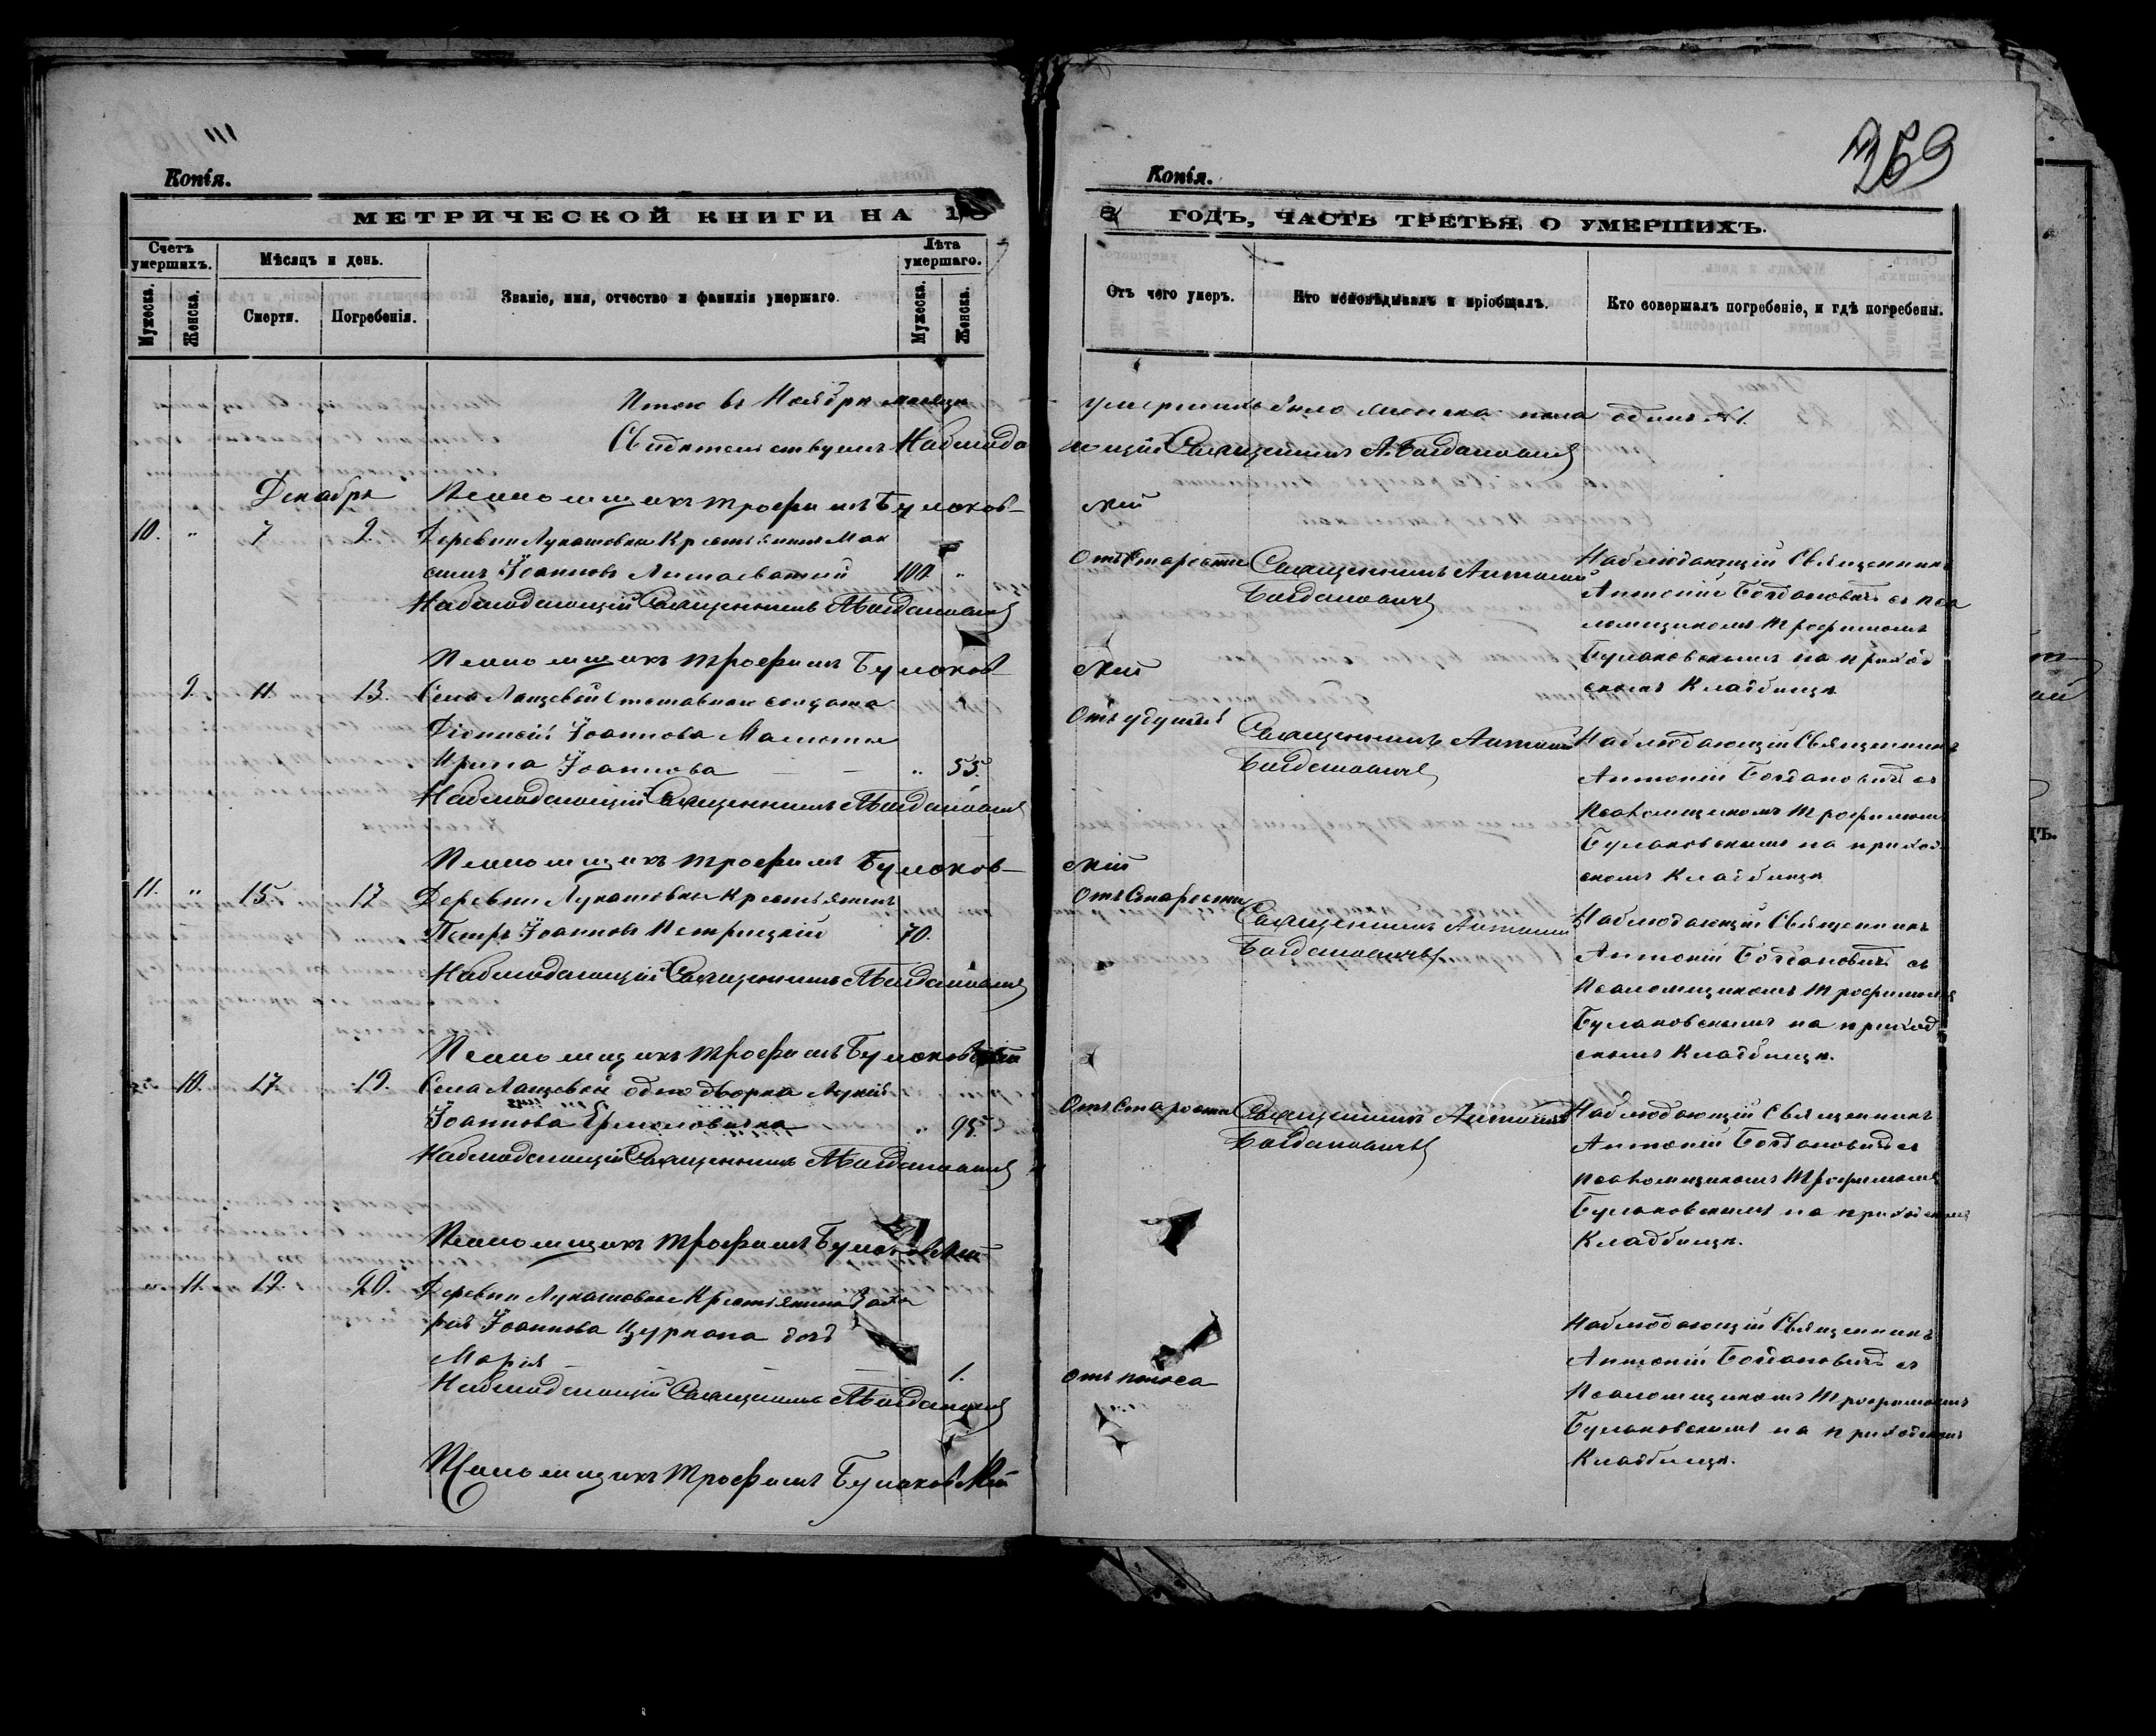 111
Копія.
МЕТРИЧЕСКОЙ КНИГИ НА 18
Счетъ умершихъ.
Мѣсяцъ и день.
Званіе, имя, отчество и фамилія умершаго.
Лѣта умершаго.
Мужеска.
Женска.
Смерти.
Погребенія.
Мужеска.
Женска.
Итого въ Ноябрѣ месяцѣ
Свидѣтельствуетъ Наблюда
Декабрь Псаломщикъ Трофимъ Булаков-
10. " 7 9. Деревни Лукашовки Крестьянинъ Мак
симъ Іоанновъ 100 "
Наблюдающій Священникъ А Богдановичъ
Псаломщикъ Трофимъ Булаков-
9. 11. 13. Села отставнаго солдата
Іоаннова
Ирина Іоаннова — — " 55.
Наблюдающій Священникъ А Богдановичъ
Псаломщикъ Трофимъ Булаков-
11. " 15. 17 Деревни Лукашовки Крестьянинъ
Петръ Іоанновъ Петрицкій 70.
Наблюдающій Священникъ А Богдановичъ
Псаломщикъ Трофимъ Булаковскій
10. 17. 19. Села однодворка
Іоаннова Ермоловичка " 95.
Наблюдающій Священникъ А Богдановичъ
Псаломщикъ Трофимъ Булаковскій
11. 19. 20. Деревни Лукашовки Крестьянина Заха
рія Іоаннова Цуркана дочь
Марія — — — 1.
Наблюдающій Священникъ А Богдановичъ
Псаломщикъ Трофимъ Булаковскій
269
Копія.
ГОДЪ, ЧАСТЬ ТРЕТЬЯ, О УМЕРШИХЪ.
Отъ чего умеръ.
Кто исповѣдывалъ и пріобщалъ.
Кто совершалъ погребеніе, и гдѣ погребены.
умершихъ было женска пола одинъ №1.
ющій Священникъ А. Богдановичъ
скій
Отъ Старости
Священникъ Антоній
Богдановичъ
Наблюдающій Священникъ
Антоній Богдановичъ съ пса
ломщикомъ Трофимомъ
Булаковскимъ на приход
скомъ Кладбищѣ
скій
Отъ удушья
Священникъ Антоній
Богдановичъ
Наблюдающій Священникъ
Антоній Богдановичъ съ
Псаломщикомъ Трофимомъ
Булаковскимъ на приход
скомъ Кладбищѣ
скій
Отъ Старости
Священникъ Антоній
Богдановичъ
Наблюдающій Священникъ
Антоній Богдановичъ съ
Псаломщикомъ Трофимомъ
Булаковскимъ на приход
скомъ Кладбищѣ.
Отъ Старости
Священникъ Антоній
Богдановичъ
Наблюдающій Священникъ
Антоній Богдановичъ съ
псаломщикомъ Трофимомъ
Булаковскимъ на приходскомъ
Кладбищѣ.
Отъ поноса
Наблюдающій Священникъ
Антоній Богдановичъ съ
Псаломщикомъ Трофимомъ
Булаковскимъ на приходскомъ
Кладбищѣ.